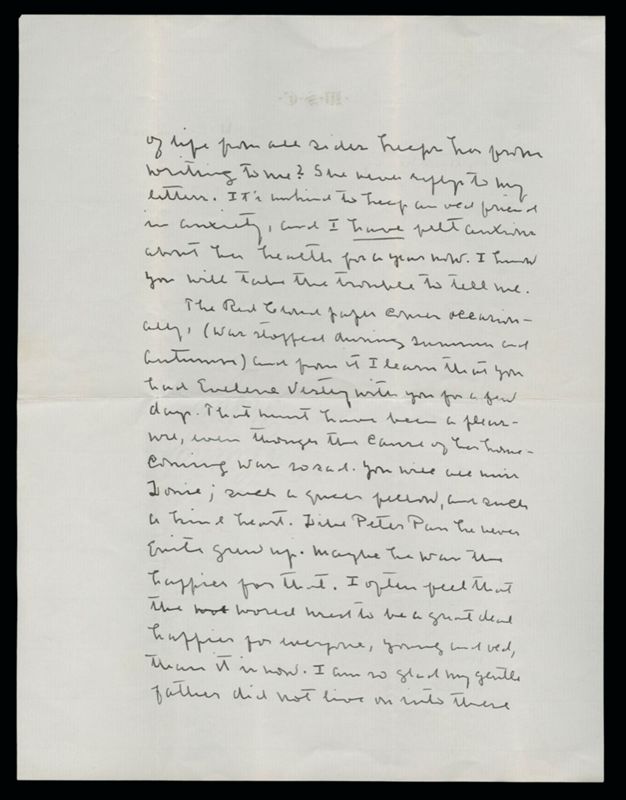 of life from all sides keeps her from
writing to me? She never replys to my
letters. It's unkind to keep an old friend
in anxiety, and I have felt anxious
about her health for a year now. I know
you will take the trouble to tell me.
The Red Cloud paper comes occasion-
ally, (was stopped during summer and
autumn) and from it I learn that you
had Evelene Vesteg with you for a few
days. That must have been a pleas-
ure, even though the cause of her home-
coming was so sad. You will all miss
such a queer fellow, and such
a kind heart. Like Peter Pan he never
quite grew up. Maybe he was the
happier for that. I often feel that
the world used to be a great deal
happier for everyone, young and old,
than it is now. I am so glad my gentle
father did not live on into these